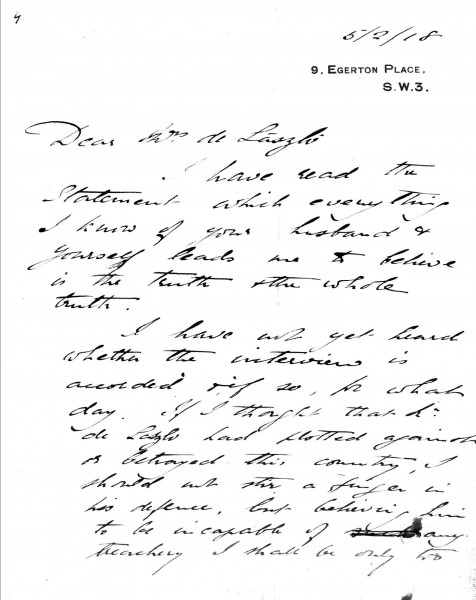 5/2/18
9, EGERTON PLACE,
S.W.3.
Dear Mrs de László
I have read the
statement which everything
I know of your husband &
yourself leads me to believe
is the truth & the whole
truth.
I have not yet heard
whether the interview is
accorded & if so, for what
day. If I thought that Mr
de Laszlo had plotted against
or betrayed this country, I
should not stir a finger in
his defence, but believing him
to be incapable of any
treachery I shall be only too